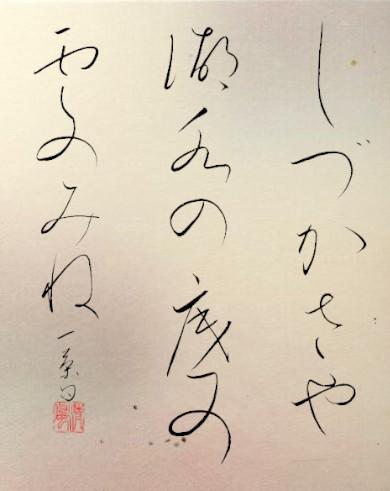 しづかさや
湖水の底の
雲のみね
一茶句